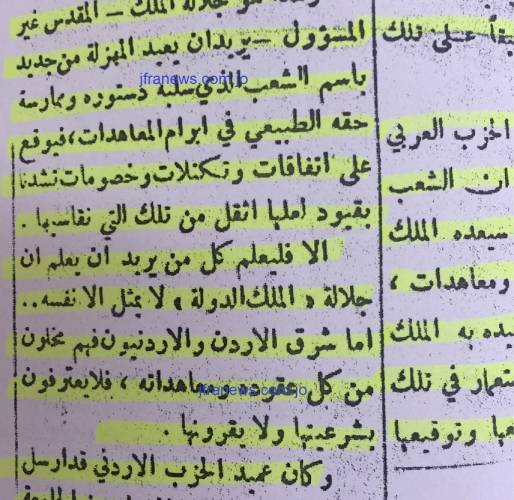 جلالة الملك – المقدس غير
المسؤول – يريد ان يعيد المهزلة من جديد
باسم الشعب الذي سلبه دستوره وممارسة
حقه الطبيعي في ابرام المعاهدات، فيوقع
على اتفاقات وتكتلات وخصومات تشدنا
بقيود لعلها اثقل من تلك التي نقاسيها .
الا فليعلم كل من يريد ان يعلم ان
جلالة « الملك الدولة » لا يمثل الا نفسه..
اما شرق الاردن والاردنيون فهم مخلون
من كل عقوده ومعاهداته ، فلا يعترفون
بشرعيتها ولا يقرونها .
وكان عميد الحزب الاردني قد ارسل
على تلك
الحزب العربي
ان الشعب
سيعده الملك
ومعاهدات ،
به الملك
في تلك
وتوقيعها
jfranews.com.jo
jfranews.com.jo